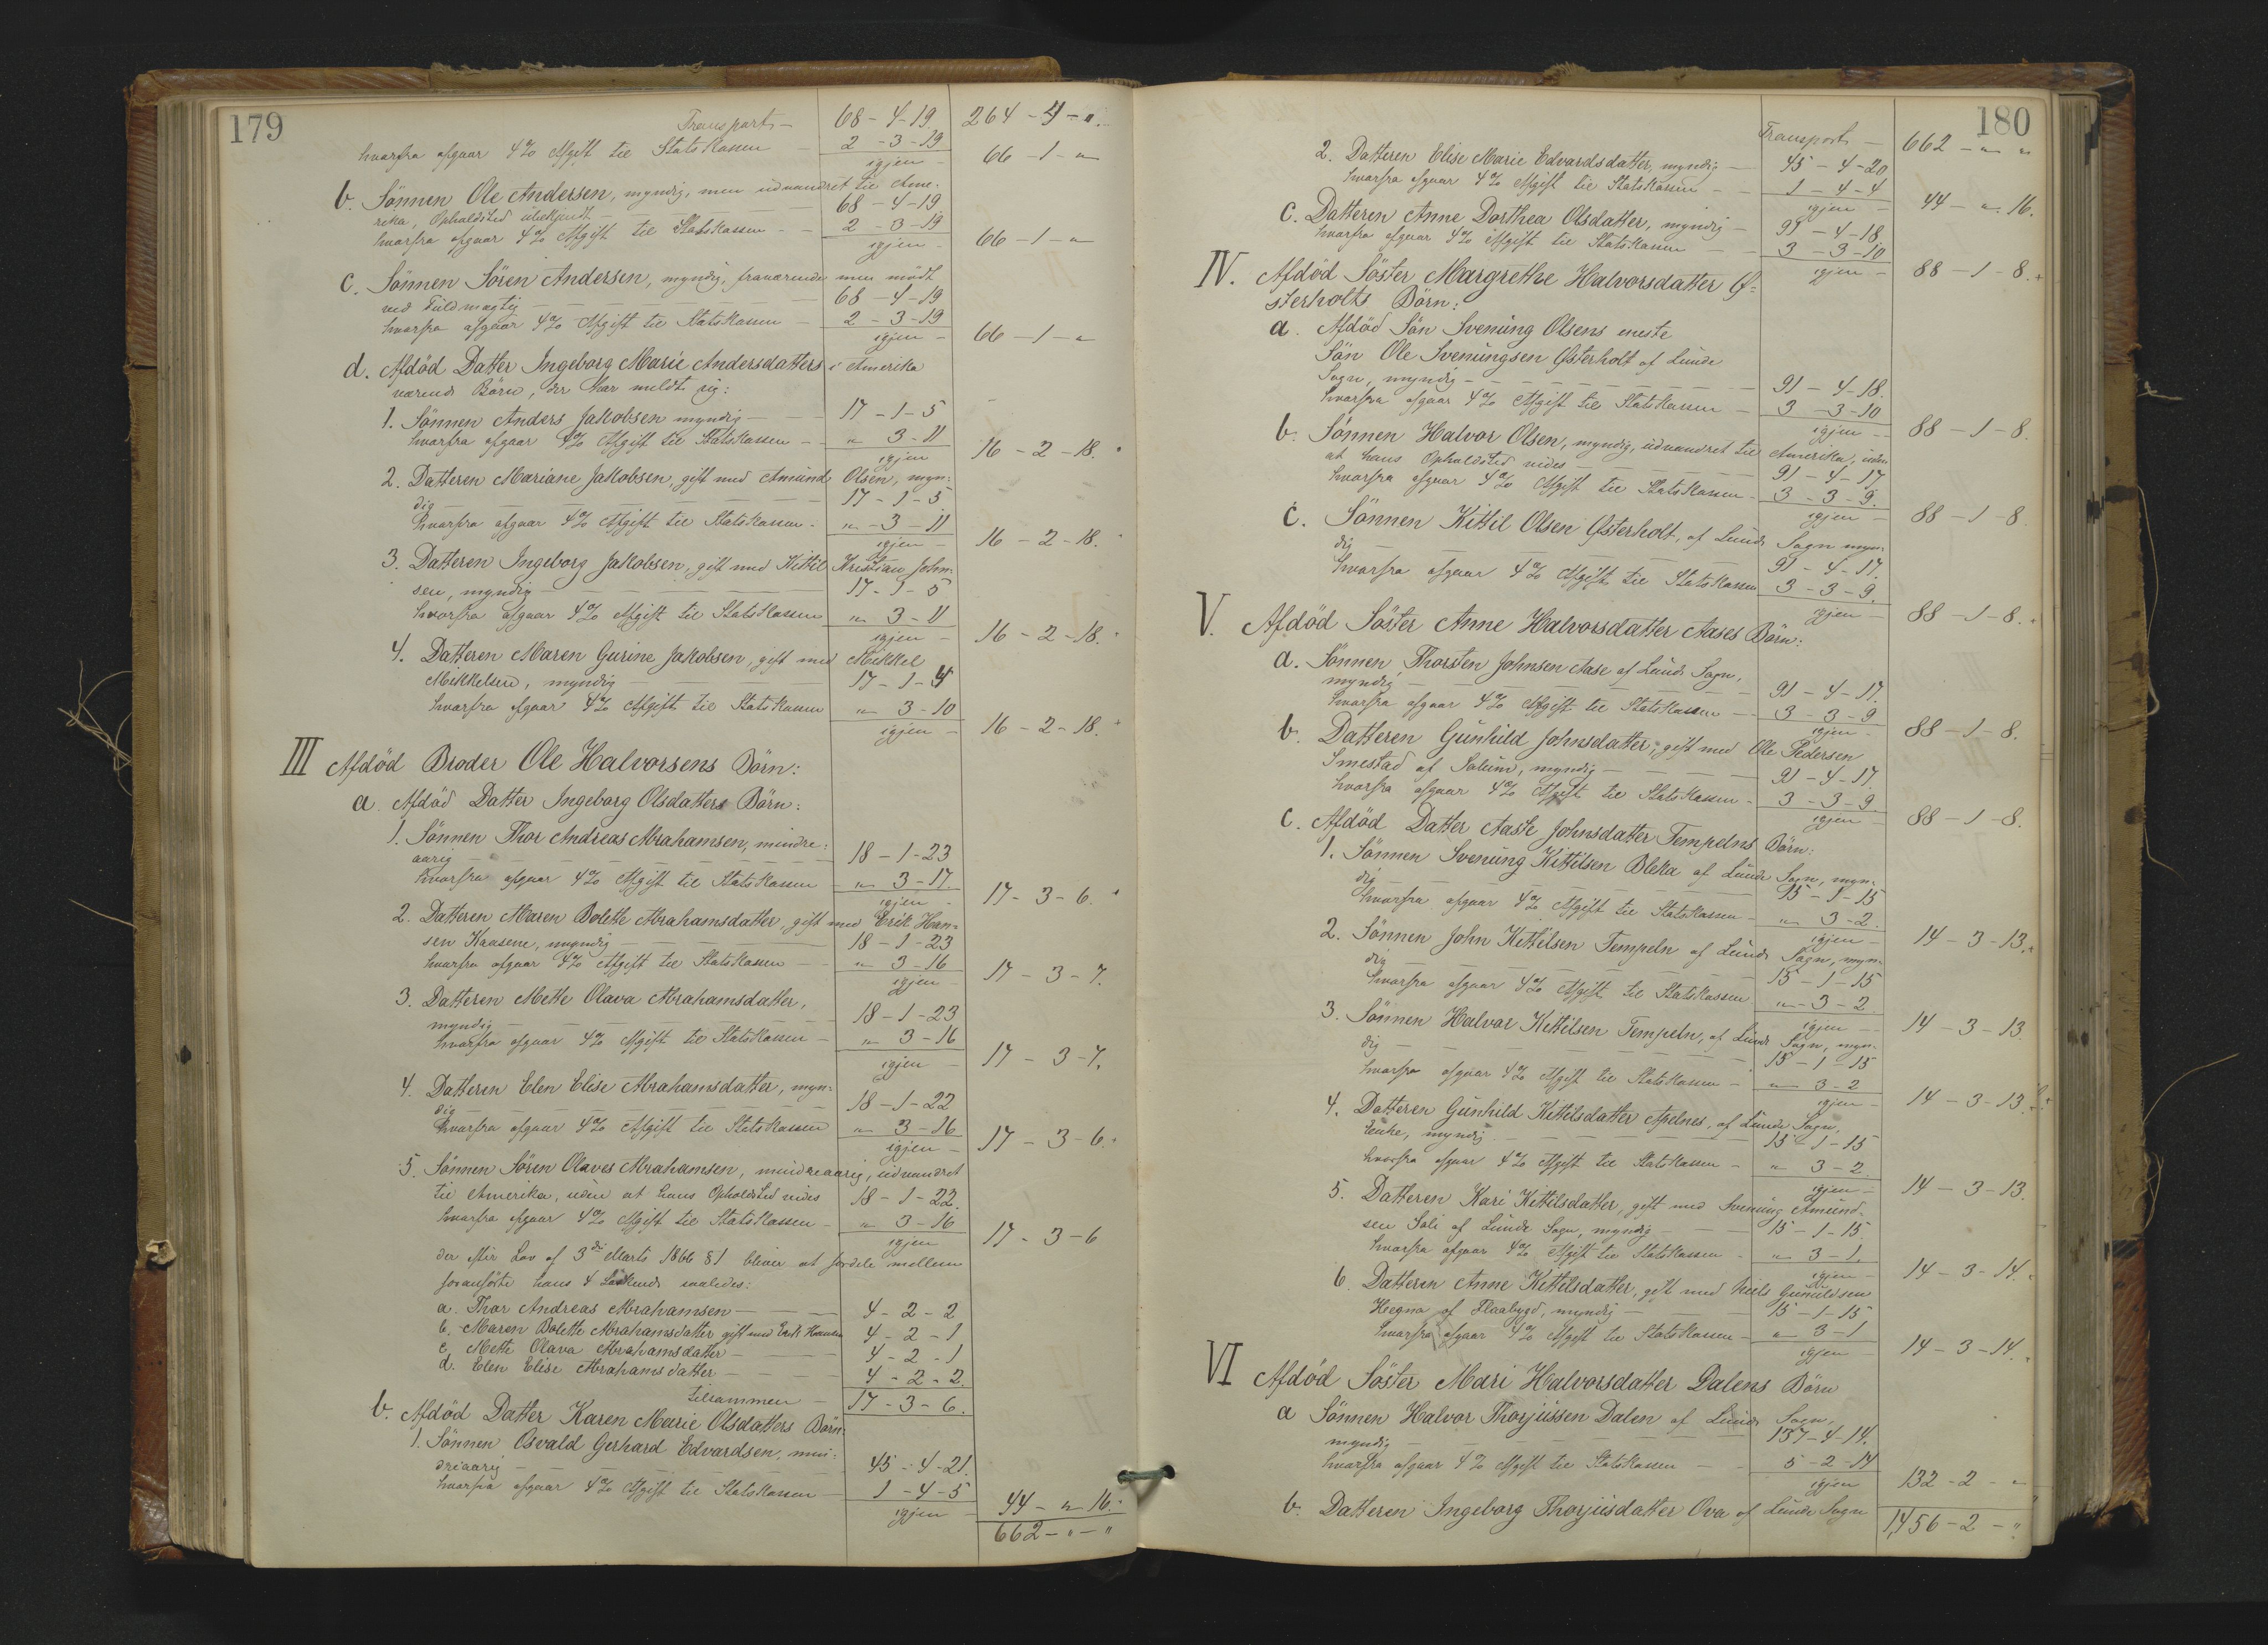 179
Transport — 68 - 4 - 19 264 - 4 - "
hvorfra afgaar 4% Afgift til Statskassen — 2 - 3 - 19
igjen — 66 - 1 - "
b. Sönnen Ole Andersen, myndig, men udvandret til Ame-
rika, Opholdsted ubekjendt — 68 - 4 - 19
hvorfra afgaar 4% Afgift til Statskassen — 2 - 3 - 19
igjen — 66 - 1 - "
c. Sönnen Sören Andersen, myndig, fraværende men mödt
ved Fuldmægtig — 68 - 4 - 19
hvorfra afgaar 4% Afgift til Statskassen — 2 - 3 - 19
igjen — 66 - 1 - "
d. Afdöd Datter Ingeborg Marie Andersdatters i Amerika
værende Börn, der har meldt sig:
1. Sönnen Anders Jakobsen myndig — 17 - 1 - 5
hvorfra afgaar 4% Afgift til Statskassen — " 3 - 11
igjen 16 - 2 - 18.
2. Datteren Mariane Jakobsen, gift med Amund Olsen, myn-
dig — 17 - 1 - 5
hvorfra afgaar 4% Afgift til Statskassen — " - 3 - 11
igjen — 16 - 2 - 18.
3. Datteren Ingeborg Jakobsen, gift med Kittil Kristian John-
sen, myndig — 17 - 1 - 5
hvorfra afgaar 4% Afgift til Statskassen " 3 - 11
igjen — 16 - 2 - 18.
4. Datteren Maren Gurine Jakobsen, gift med Mikkel
Mikkelsen, myndig — 17 - 1 - 4
hvorfra afgaar 4% Afgift til Statskassen " 3 - 10
igjen — 16 - 2 - 18.
III Afdöd Broder Ole Halvorsens Börn:
a. Afdöd Datter Ingeborg Olsdatters Börn:
1. Sönnen Thor Andreas Abrahamsen, mindre-
aarig — 18 - 1 - 23
hvorfra afgaar 4% Afgift til Statskassen " 3 - 17.
igjen — 17 - 3 - 6.
2. Datteren Maren Bolette Abrahamsdatter, gift med Erik Han-
sen Kaasene, myndig — 18 - 1 - 23
hvorfra afgaar 4% Afgift til Statskassen — " 3 - 16
igjen — 17 - 3 - 7.
3. Datteren Mette Olava Abrahamsdatter,
myndig — 18 - 1 - 23
hvorfra afgaar 4% Afgift til Statskassen — " 3 - 16
igjen — 17 - 3 - 7.
4. Datteren Elen Elise Abrahamsdatter, myn-
dig — 18 - 1 - 22
hvorfra afgaar 4% Afgift til Statskassen " 3 - 16
igjen — 17 - 3 - 6.
5. Sönnen Sören Olaves Abrahamsen, mindreaarig, udvandret
til Amerika, uden at hans Opholdsted vides 18 - 1 - 22.
hvorfra afgaar 4% Afgift til Statskassen — " 3 - 16
igjen 17 - 3 - 6
der efter Lov af 3die Marts 1866 §1 bliver at fordele mellem
foranförte hans 4 Södskende saaledes:
a. Thor Andreas Abrahamsen — 4 - 2 - 2
b. Maren Bolette Abrahamsdatter gift med Erik Hansen 4 - 2 - 1
c Mette Olava Abrahamsdatter — 4 - 2 - 1
d. Elen Elise Abrahamsdatter — 4 - 2 - 2.
tilsammen — 17 - 3 - 6.
b. Afdöd Datter Karen Marie Olsdatters Börn:
1. Sönnen Osvald Gerhard Edvardsen, min-
dreaarig — 45 - 4 - 21.
hvorfra afgaar 4% Afgift til Statskassen — 1 - 4 - 5
igjen — 44 - " 16.
662 - " - "
180
Transport — 662 - " "
2. Datteren Elise Marie Edvardsdatter, myndig — 45 - 4 - 20
hvorfra afgaar 4% Afgift til Statskassen — 1 - 4 - 4
igjen — 44 - " 16.
c. Datteren Anne Dorthea Olsdatter, myndig — 91 - 4 - 18
hvorfra afgaar 4% Afgift til Statskassen — 3 - 3 - 10
igjen — 88 - 1 - 8.
IV. Afdöd Söster Margrethe Halvorsdatter Ø-
sterholts Börn:
a. Afdöd Sön Svenung Olsens eneste
Sön Ole Svenungsen Østerholt af Lunde
Sogn, myndig — 91 - 4 - 18.
hvorfra afgaar 4% Afgift til Statskassen — 3 - 3 - 10
igjen — 88 - 1 - 8.
b. Sönnen Halvor Olsen, myndig, udvandret til Amerika, uden
at hans Opholdsted vides — 91 - 4 - 17
hvorfra afgaar 4% Afgift til Statskassen — 3 - 3 - 9.
igjen — 88 - 1 - 8
c. Sönnen Kittil Olsen Østerholt, af Lunde Sogn myn-
dig — 91 - 4 - 17.
hvorfra afgaar 4% Afgift til Statskassen 3 - 3 - 9.
igjen — 88 - 1 - 8.
V. Afdöd Söster Anne Halvorsdatter Aases Börn:
a. Sönnen Thorsten Johnsen Aase af Lunde Sogn,
myndig — 91 - 4 - 17.
hvorfra afgaar 4% Afgift til Statskassen — 3 - 3 - 9
igjen — 88 - 1 - 8.
b. Datteren Gunhild Johnsdatter, gift med Ole Pedersen
Smestad af Solum, myndig — 91 - 4 - 17.
hvorfra afgaar 4% Afgift til Statskassen — 3 - 3 - 9.
igjen — 88 - 1 - 8.
c. Afdöd Datter Aaste Johnsdatter Tempelns Börn:
1. Sönnen Svenung Kittilsen Bleka af Lunde Sogn, myn-
dig — 15 - 1 - 15
hvorfra afgaar 4% Afgift til Statskassen — " 3 - 2.
igjen — 14 - 3 - 13.
2. Sönnen John Kittilsen Tempeln af Lunde Sogn, myn-
dig — 15 - 1 - 15
hvorfra afgaar 4% Afgift til Statskassen " - 3 - 2
igjen — 14 - 3 - 13
3. Sönnen Halvor Kittilsen Tempeln, af Lunde Sogn, myn-
dig — 15 - 1 - 15
hvorfra afgaar 4% Afgift til Statskassen — " 3 - 2
igjen — 14 - 3 - 13.
4. Datteren Gunhild Kittilsdatter Apelnes, af Lunde Sogn,
Enke, myndig — 15 - 1 - 15
hvorfra afgaar 4% Afgift til Statskassen — " 3 - 2
igjen — 14 - 3 - 13.
5. Datteren Kari Kittilsdatter, gift med Svenung Amund-
sen Sali af Lunde Sogn, myndig — 15 - 1 - 15
hvorfra afgaar 4% Afgift til Statskassen — " 3 - 1.
igjen — 14 - 3 - 14.
6 Datteren Anne Kittilsdatter, gift med Niels Gunuldsen
Hegna af Flaabygd, myndig — 15 - 1 - 15
hvorfra afgaar 4% Afgift til Statskassen — " 3 - 1
igjen — 14 - 3 - 14.
VI Afdöd Söster Mari Halvorsdatter Dalens Börn
a Sönnen Halvor Thorjussen Dalen af Lunde Sogn,
myndig — 137 - 4 - 14.
hvorfra afgaar 4% Afgift til Statskassen — 5 - 2 - 14
igjen 132 - 2 - "
b. Datteren Ingeborg Thorjusdatter Ova af Lunde Sogn
1,456 - 2 - "